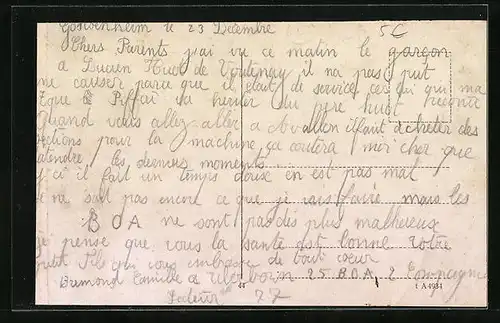 Gonsenheim le 23 Décembre
5C
Chers Parents j'ai vu ce matin le garçon
a Lucien Huot de Voutenay il na pas put
me causer parce que il etait de service ces qui qui ma
que Piffai sa hernier du pyre huot reconté
Quand vous allez aller a Avallon ilfaut acheter des
ections pour la machine ça coutera moi cher que
atendre les derniers moments
ici il fait un temps doux en est pas mal
ne sait pas encore ce que je vais faire mais les
BOA ne sont pas des plus malhereux
je pense que vous la santé est bonne Votre
petit fils qui vous embrasse de tout coeur
Brimond Camille a 25 BOA, 2 Compagnie
Secteur 77
44
t A4934